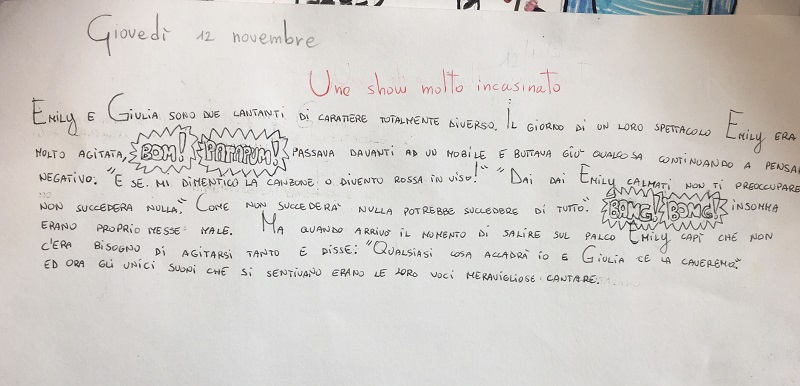 Giovedì 12 novembre
Uno show molto incasinato
EMILY E GIULIA SONO DUE CANTANTI DI CARATTERE TOTALMENTE DIVERSO. IL GIORNO DI UN LORO SPETTACOLO EMILY ERA
MOLTO AGITATA, BOM! PATAPUM! PASSAVA DAVANTI AD UN MOBILE E BUTTAVA GIÙ QUALCOSA CONTINUANDO A PENSAR
NEGATIVO. "E SE MI DIMENTICO LA CANZONE O DIVENTO ROSSA IN VISO!" "DAI DAI EMILY CALMATI NON TI PREOCCUPARE
NON SUCCEDERÀ NULLA." COME NON SUCCEDERÀ NULLA POTREBBE SUCCEDERE DI TUTTO." BANG! BONG! INSOMMA
ERANO PROPRIO MESSE MALE. MA QUANDO ARRIVÒ IL MOMENTO DI SALIRE SUL PALCO EMILY CAPÌ CHE NON
C'ERA BISOGNO DI AGITARSI TANTO E DISSE: "QUALSIASI COSA ACCADRÀ IO E GIULIA CE LA CAVEREMO."
ED ORA GLI UNICI SUONI CHE SI SENTIVANO ERANO LE LORO VOCI MERAVIGLIOSE CANTARE.